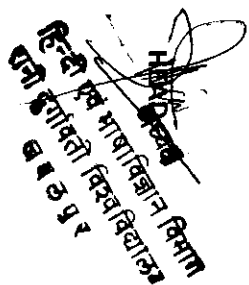 HEAD अध्यक्ष
हिन्दी एवं भाषाविज्ञान विभाग
रानी दुर्गावती विश्वविद्यालय
जबलपुर